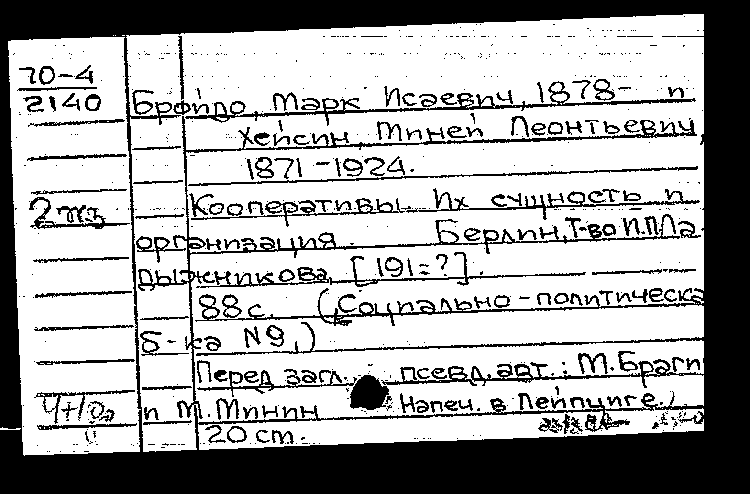 70-4
2140
Бройдо, Марк Исаевич, 1878- и
Хейсин, Миней Леонтьевич,
1871-1924.
Кооперативы. Их сущность и
организация. Берлин, Т-во И.П.Ла-
дыжникова, [191=?].
88с. (Социально-политическа
б-ка N9,)
Перед загл. псевд. авт.: М.Браги
и М.Минин Напеч. в Лейпциге.)
20 cm.